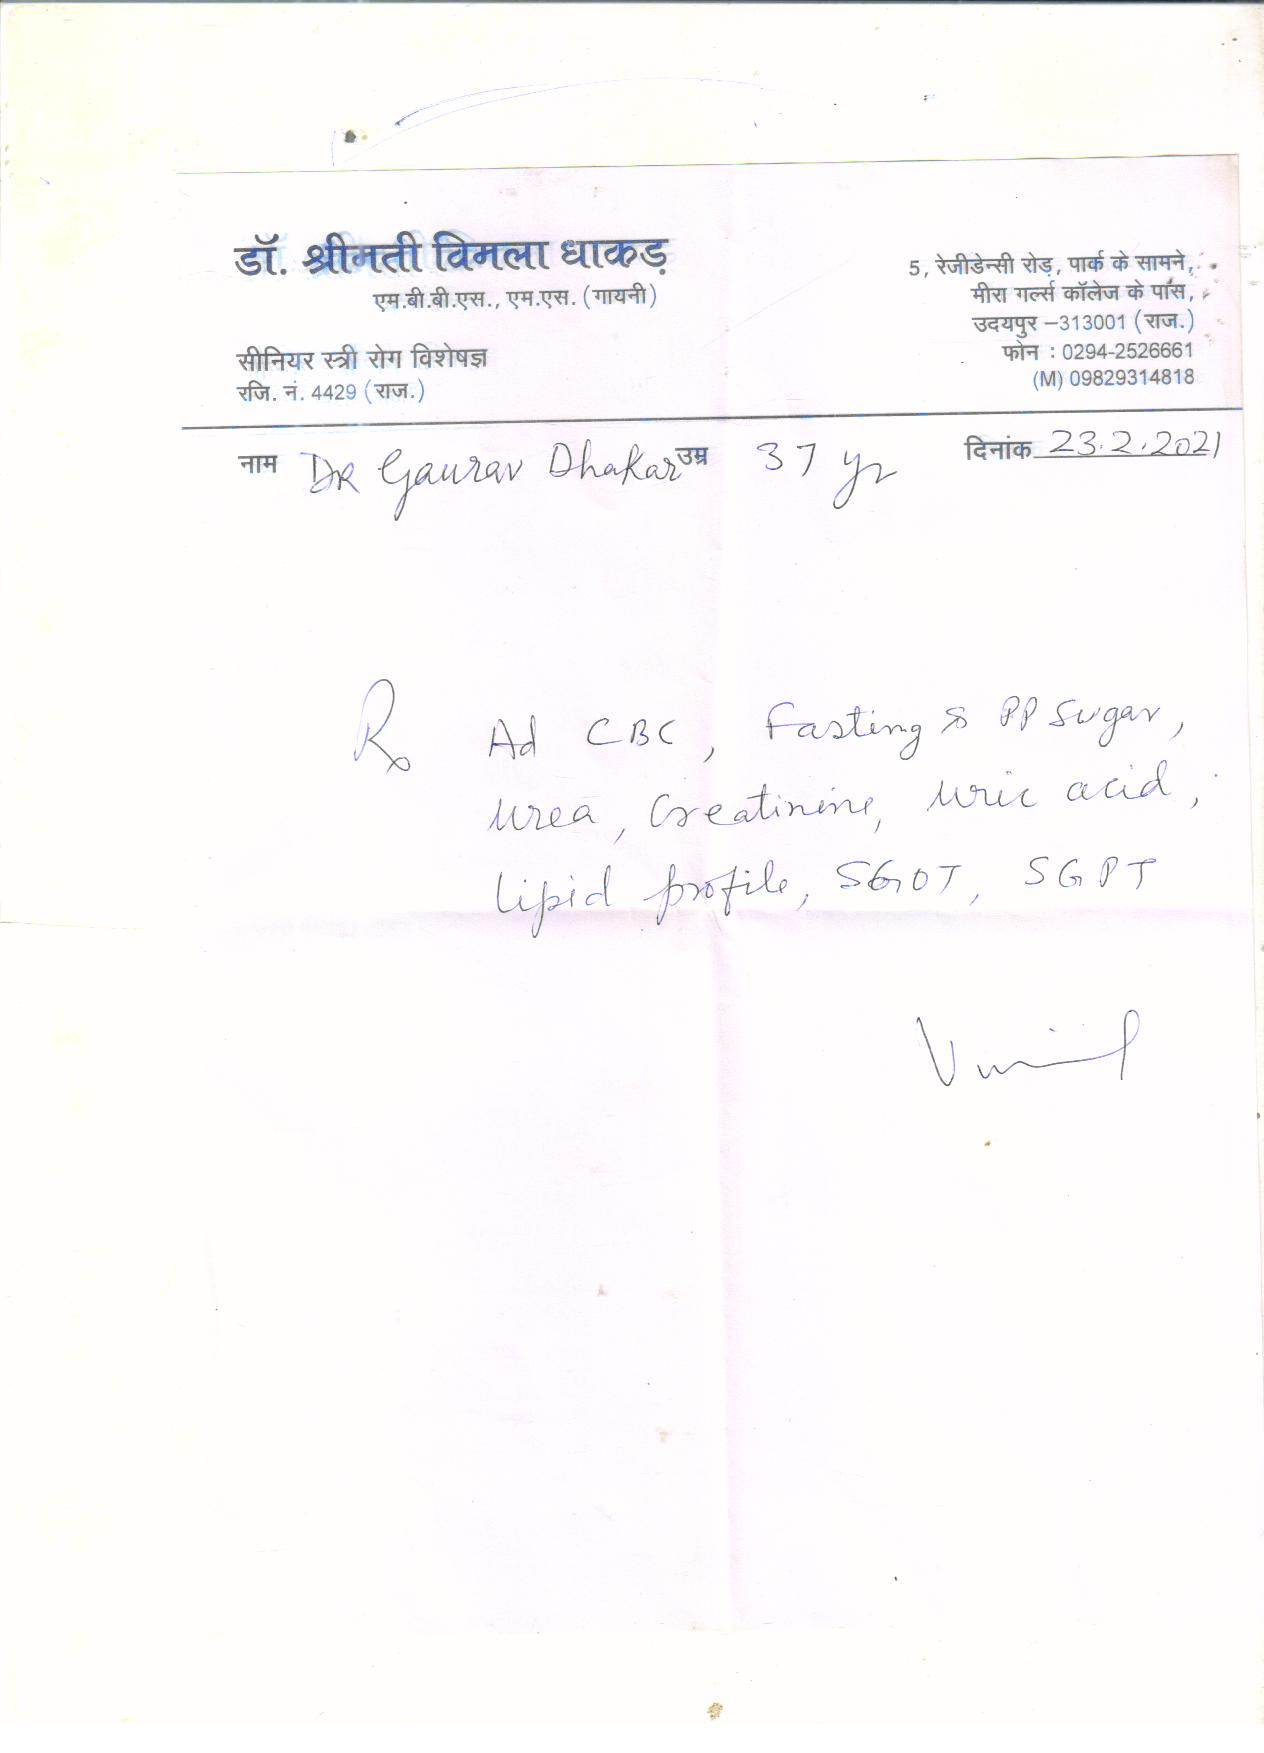 डॉ. श्रीमती विमला धाकड़
एम.बी.बी.एस., एम.एस. (गायनी)
सीनियर स्त्री रोग विशेषज्ञ
रजि. नं. 4429 (राज.)
5, रेजीडेन्सी रोड़, पार्क के सामने,
मीरा गर्ल्स कॉलेज के पास,
उदयपुर –313001 (राज.)
फोन : 0294-2526661
(M) 09829314818
नाम DR Gaurav Dhakar उम्र 37 yr दिनांक 23.2.2021
Rx Ad CBC, Fasting & PP Sugar,
Urea, Creatinine, Uric acid,
Lipid profile, SGOT, SGPT